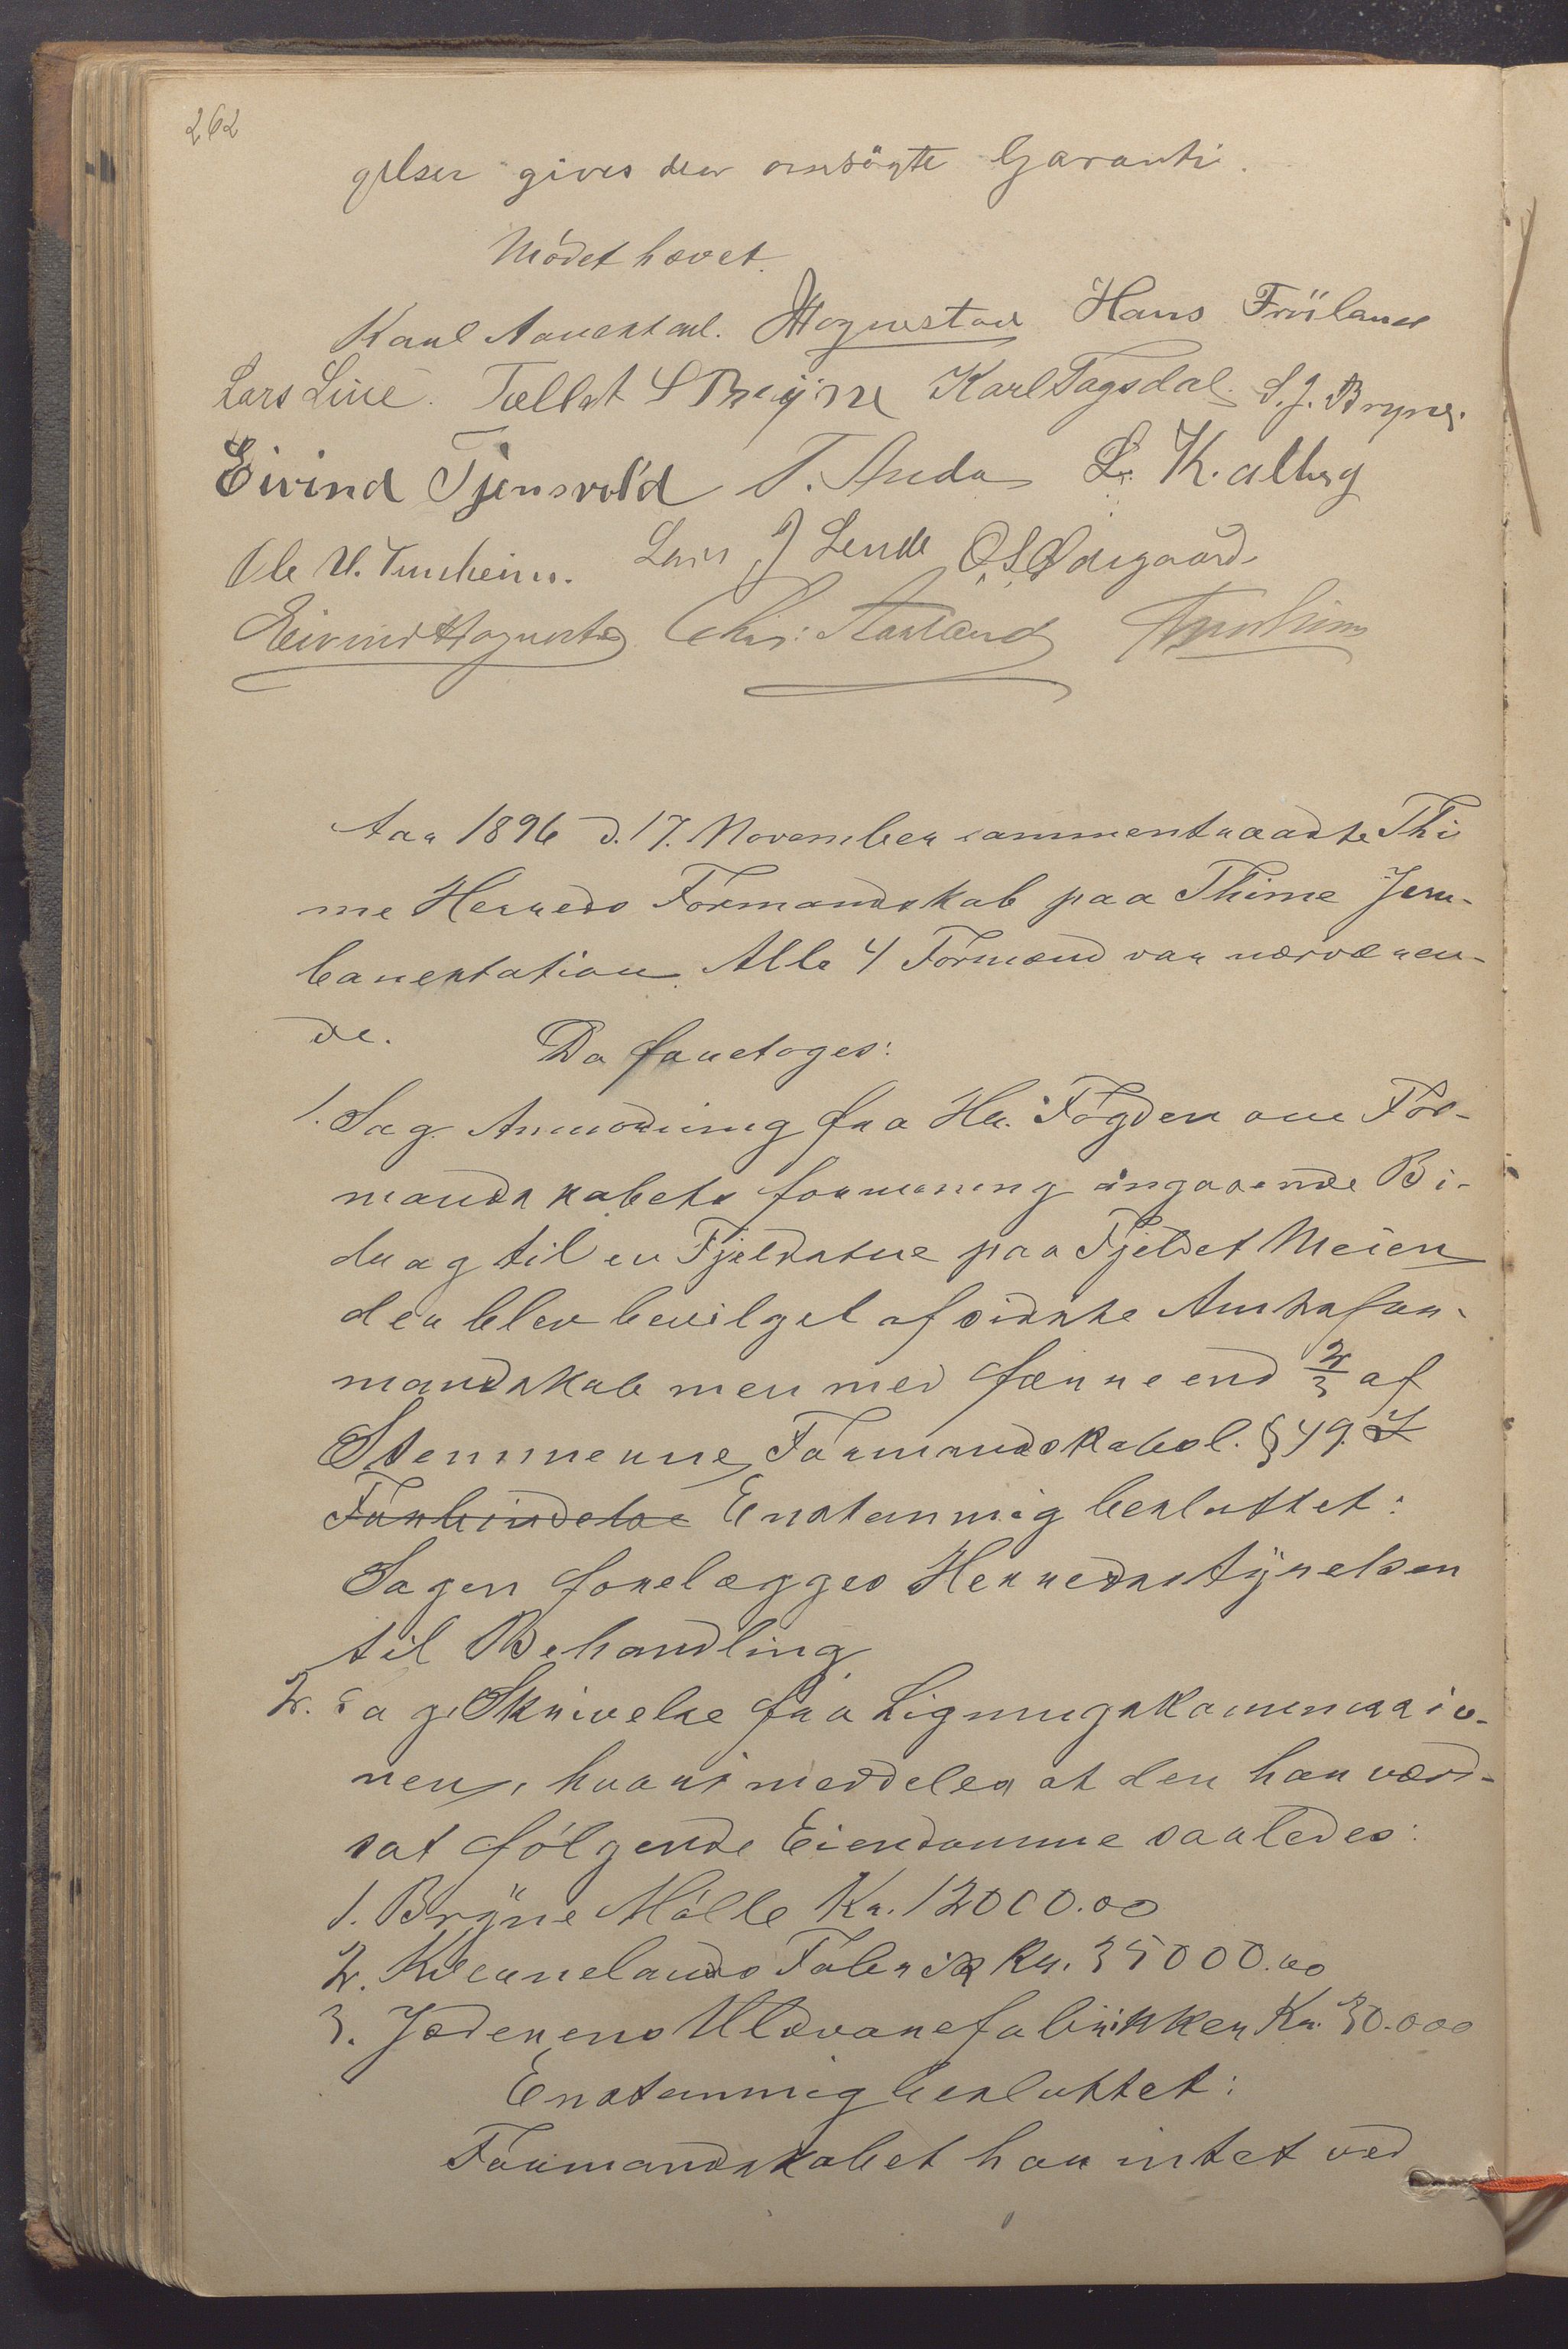 262
gelser gives den ansögte Garanti.
Mödet hævet.
Karl Aarrestad. Hognestad Hans Fröiland
Lars Line. Tollef S Bryne Karl Tagsdal. S. J. Bryne.
Eivind Tjensvold T. Anda L. Kalberg
Ole U. Tunheim. Lars J Lende O. S. Ødegaard
Eivind Hognestad Chr: Aarland
Aar 1896 d. 17. November sammentraadte Thi
me Herreds Formandskab paa Thime Jern-
banestation. Alle 4 Formænd var nærværen-
de. Da foretoges:
1. Sag. Anmodning fra Hr. Fogden om For-
mandskabets formening angaaende Bi-
drag til en Fjeldstue paa Fjeldet Meien
der blev bevilget af sidste Amtsfor-
mandskab men med færre end 2/3 af
Stemmerne, Formandskabsl. § 49. I
Forbindelse Enstemmig besluttet:
Sagen forelægges Herredsstyrelsen
til Behandling
2. Sag. Skrivelse fra Ligningskommissio-
nen, hvori meddeles at den har værd-
sat fölgende Eiendomme saaledes:
1. Bryne Mölle Kr. 12000.00
2. Kvernelands Fabrik Kr. 35000.00
3. Jæderens Uldvarefabrikker Kr. 30.000
Enstemmig besluttet:
Formandskabet har intet ved